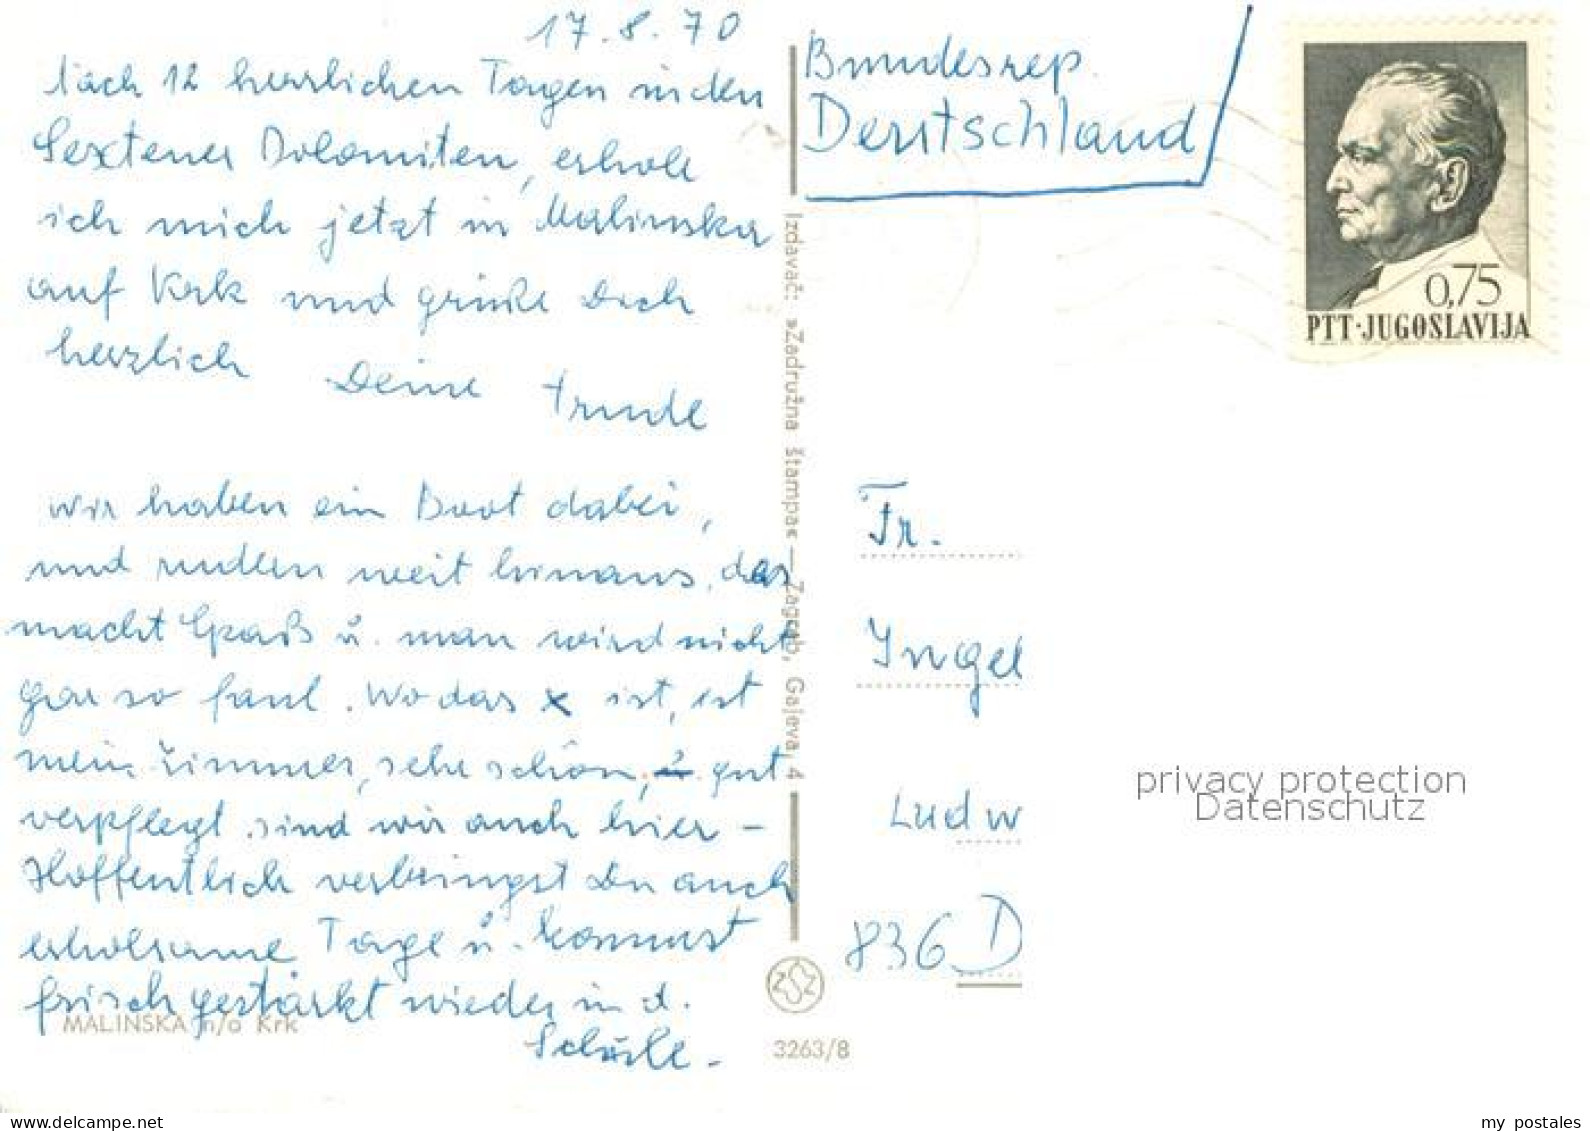 17.8.70
Nach 12 herrlichen Tagen in den
Sextener Dolomiten, erhole
ich mich jetzt in Malinska
auf Krk und grüße Dich
herzlich Deine Trude
wir haben ein Boot dabei,
und rudern weit hinaus, das
macht Spaß u. man wird nicht
gar so faul. Wo das x ist, ist
mein Zimmer, sehr schön, gut
verpflegt sind wir auch hier -
Hoffentlich verbringst Du auch
erholsame Tage u. kommst
frisch gestärkt wieder in d.
Schule.
MALINSKA n/o Krk
Izdavač: »Zadružna štampa« — Zagreb, Gajeva 4
3263/8
Bundesrep.
Deutschland
0,75
PTT·JUGOSLAVIJA
Fr.
Ingel
Ludw
836 D
privacy protection
Datenschutz
www.delcampe.net
my_postales